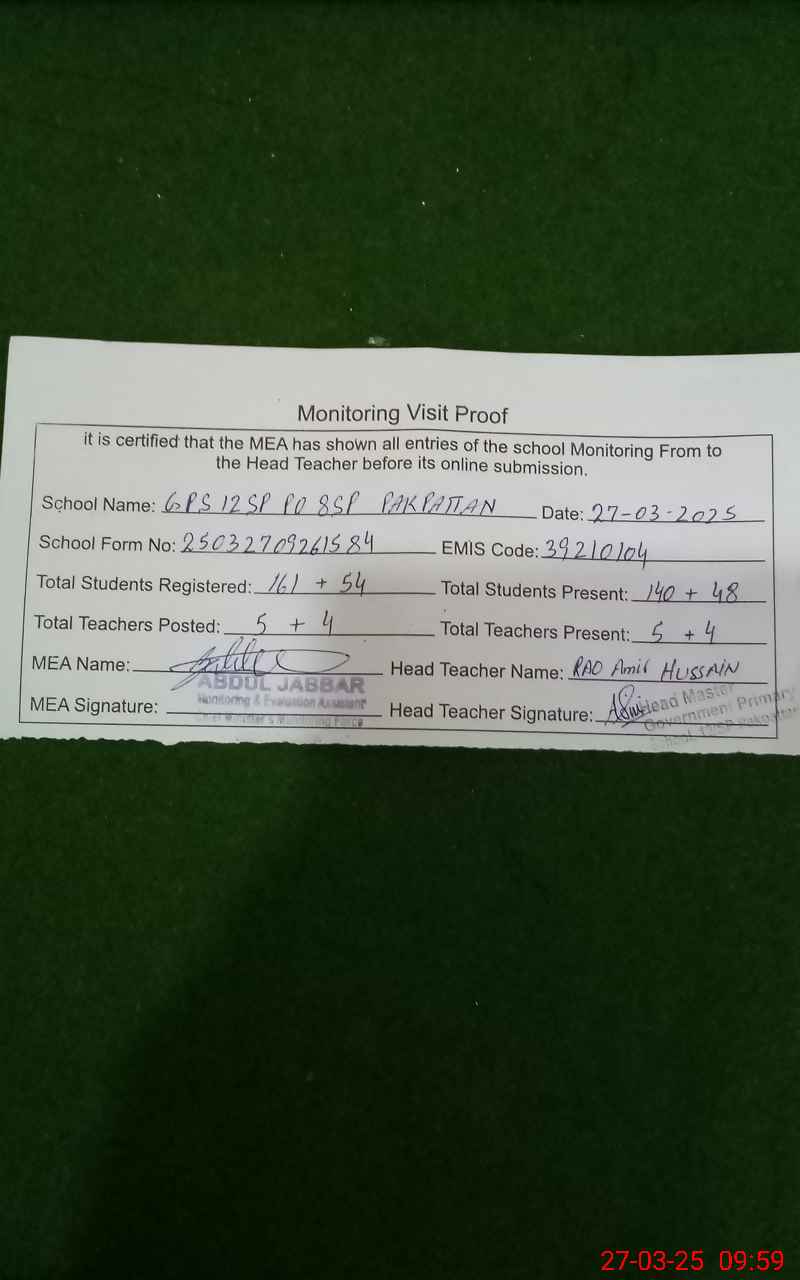 Monitoring Visit Proof
it is certified that the MEA has shown all entries of the school Monitoring From to
the Head Teacher before its online submission.
School Name: GPS 12 SP PO 8SP PAKPATTAN Date: 27-03-2025
School Form No: 25032709261584 EMIS Code: 39210104
Total Students Registered: 161 + 54 Total Students Present: 140 + 48
Total Teachers Posted: 5 + 4 Total Teachers Present: 5 + 4
MEA Name: Head Teacher Name: RAO Amir HUSSAIN
ABDUL JABBAR
Monitoring & Evaluation Assistant
Chief Minister's Monitoring Force
MEA Signature: Head Teacher Signature:
Head Master
Government Primary
School
27-03-25 09:59